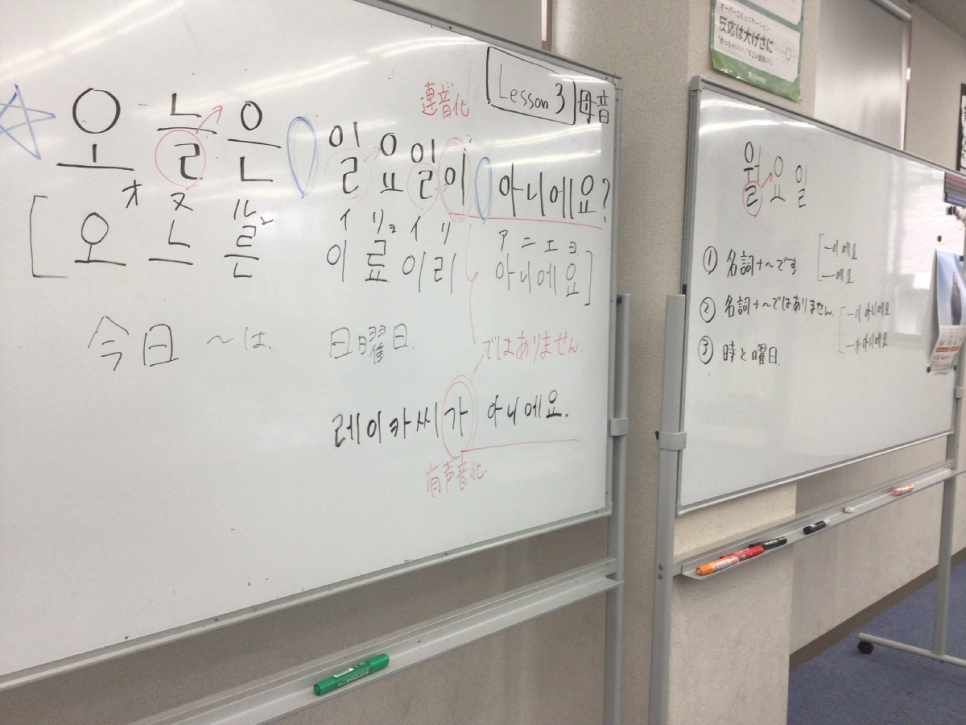 オーバーコミュニケーション
反応は大げさに
Lesson 3 母音
連音化
오늘은 일요일이 아니에요?
オ ヌ ルン イ リョ イ リ ア ニ エ ヨ
[오느른 이료이리 아니에요]
今日 ~は. 日曜日.
ではありません.
레이카씨가 아니에요.
有声音化
월요일
① 名詞+~です [-이에요
-예요
② 名詞+~ではありません. [-이 아니에요
-가 아니에요
③ 時と曜日.